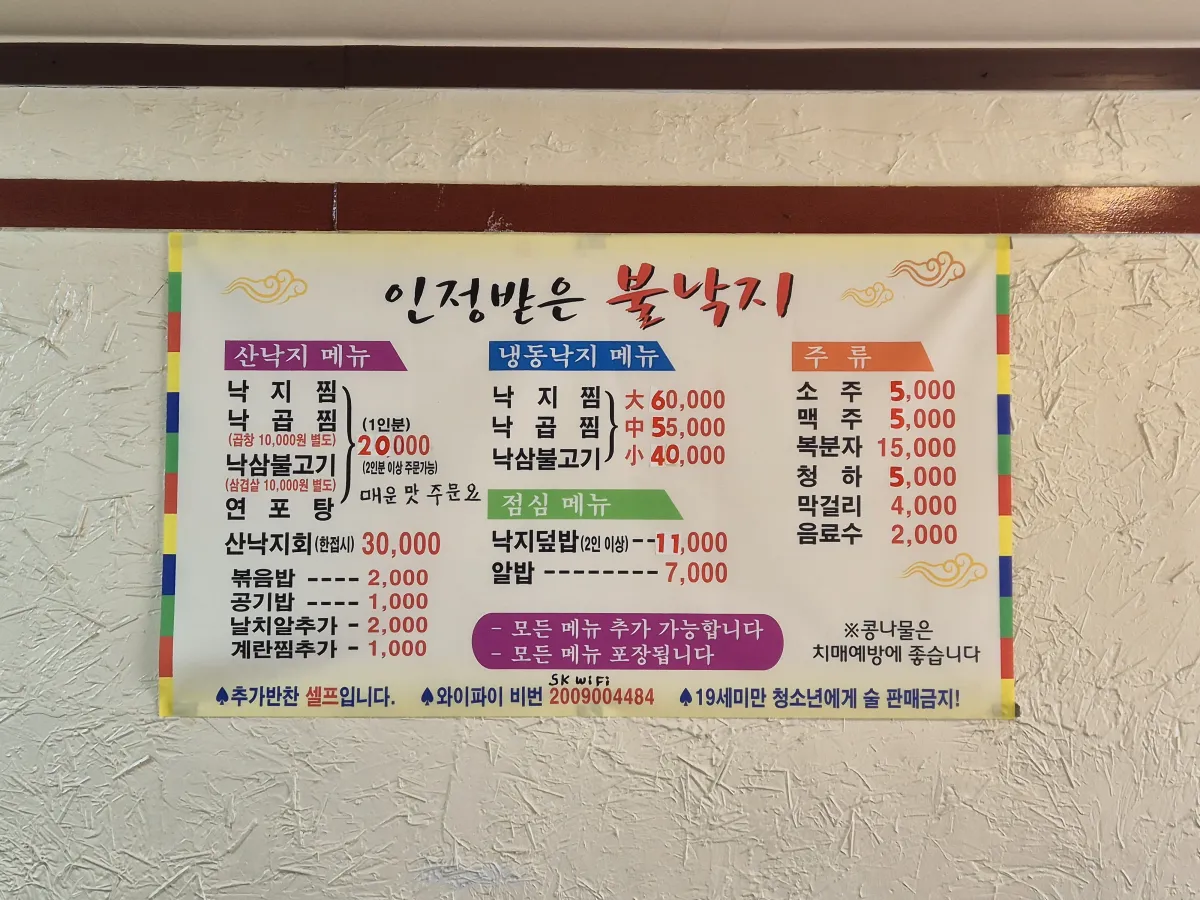 인정받은 불낙지
산낙지 메뉴
낙 지 찜
낙 곱 찜
(곱창 10,000원 별도)
낙삼불고기
(삼겹살 10,000원 별도)
연 포 탕
(1인분)
20000
(2인분 이상 주문가능)
매운 맛 주문요
산낙지회(한접시) 30,000
볶음밥 ---- 2,000
공기밥 ---- 1,000
날치알추가 - 2,000
계란찜추가 - 1,000
냉동낙지 메뉴
낙 지 찜 大 60,000
낙 곱 찜 中 55,000
낙삼불고기 小 40,000
점심 메뉴
낙지덮밥(2인 이상)--11,000
알밥 -------- 7,000
주 류
소 주 5,000
맥 주 5,000
복분자 15,000
청 하 5,000
막걸리 4,000
음료수 2,000
- 모든 메뉴 추가 가능합니다
- 모든 메뉴 포장됩니다
※콩나물은
치매예방에 좋습니다
SK WiFi
♠추가반찬 셀프입니다. ♠와이파이 비번 2009004484 ♠19세미만 청소년에게 술 판매금지!